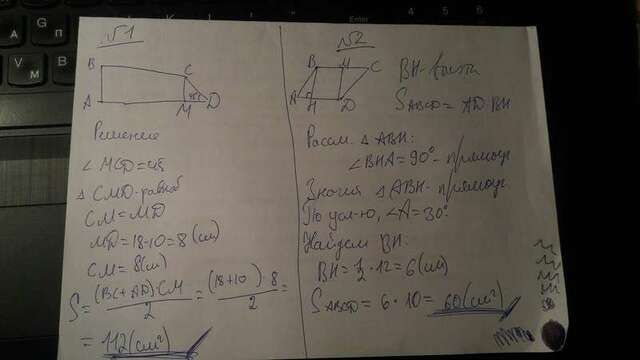 №1
B
C
A
M
45°
D
Решение
∠MCD=45
△CMD-равноб
CM=MD
MD=18-10=8(см)
CM=8(см)
S=(BC+AD)·CM/2=(18+10)·8/2=
=112(см²)
№2
B
H
C
A
H
D
BH-высота
S_ABCD=AD·BH
Рассм. △ABH:
∠BHA=90°-прямоуг.
Значит △ABH-прямоуг.
По усл-ю, ∠A=30°
Найдем BH:
BH=1/2·12=6(см)
S_ABCD=6·10=60(см²)